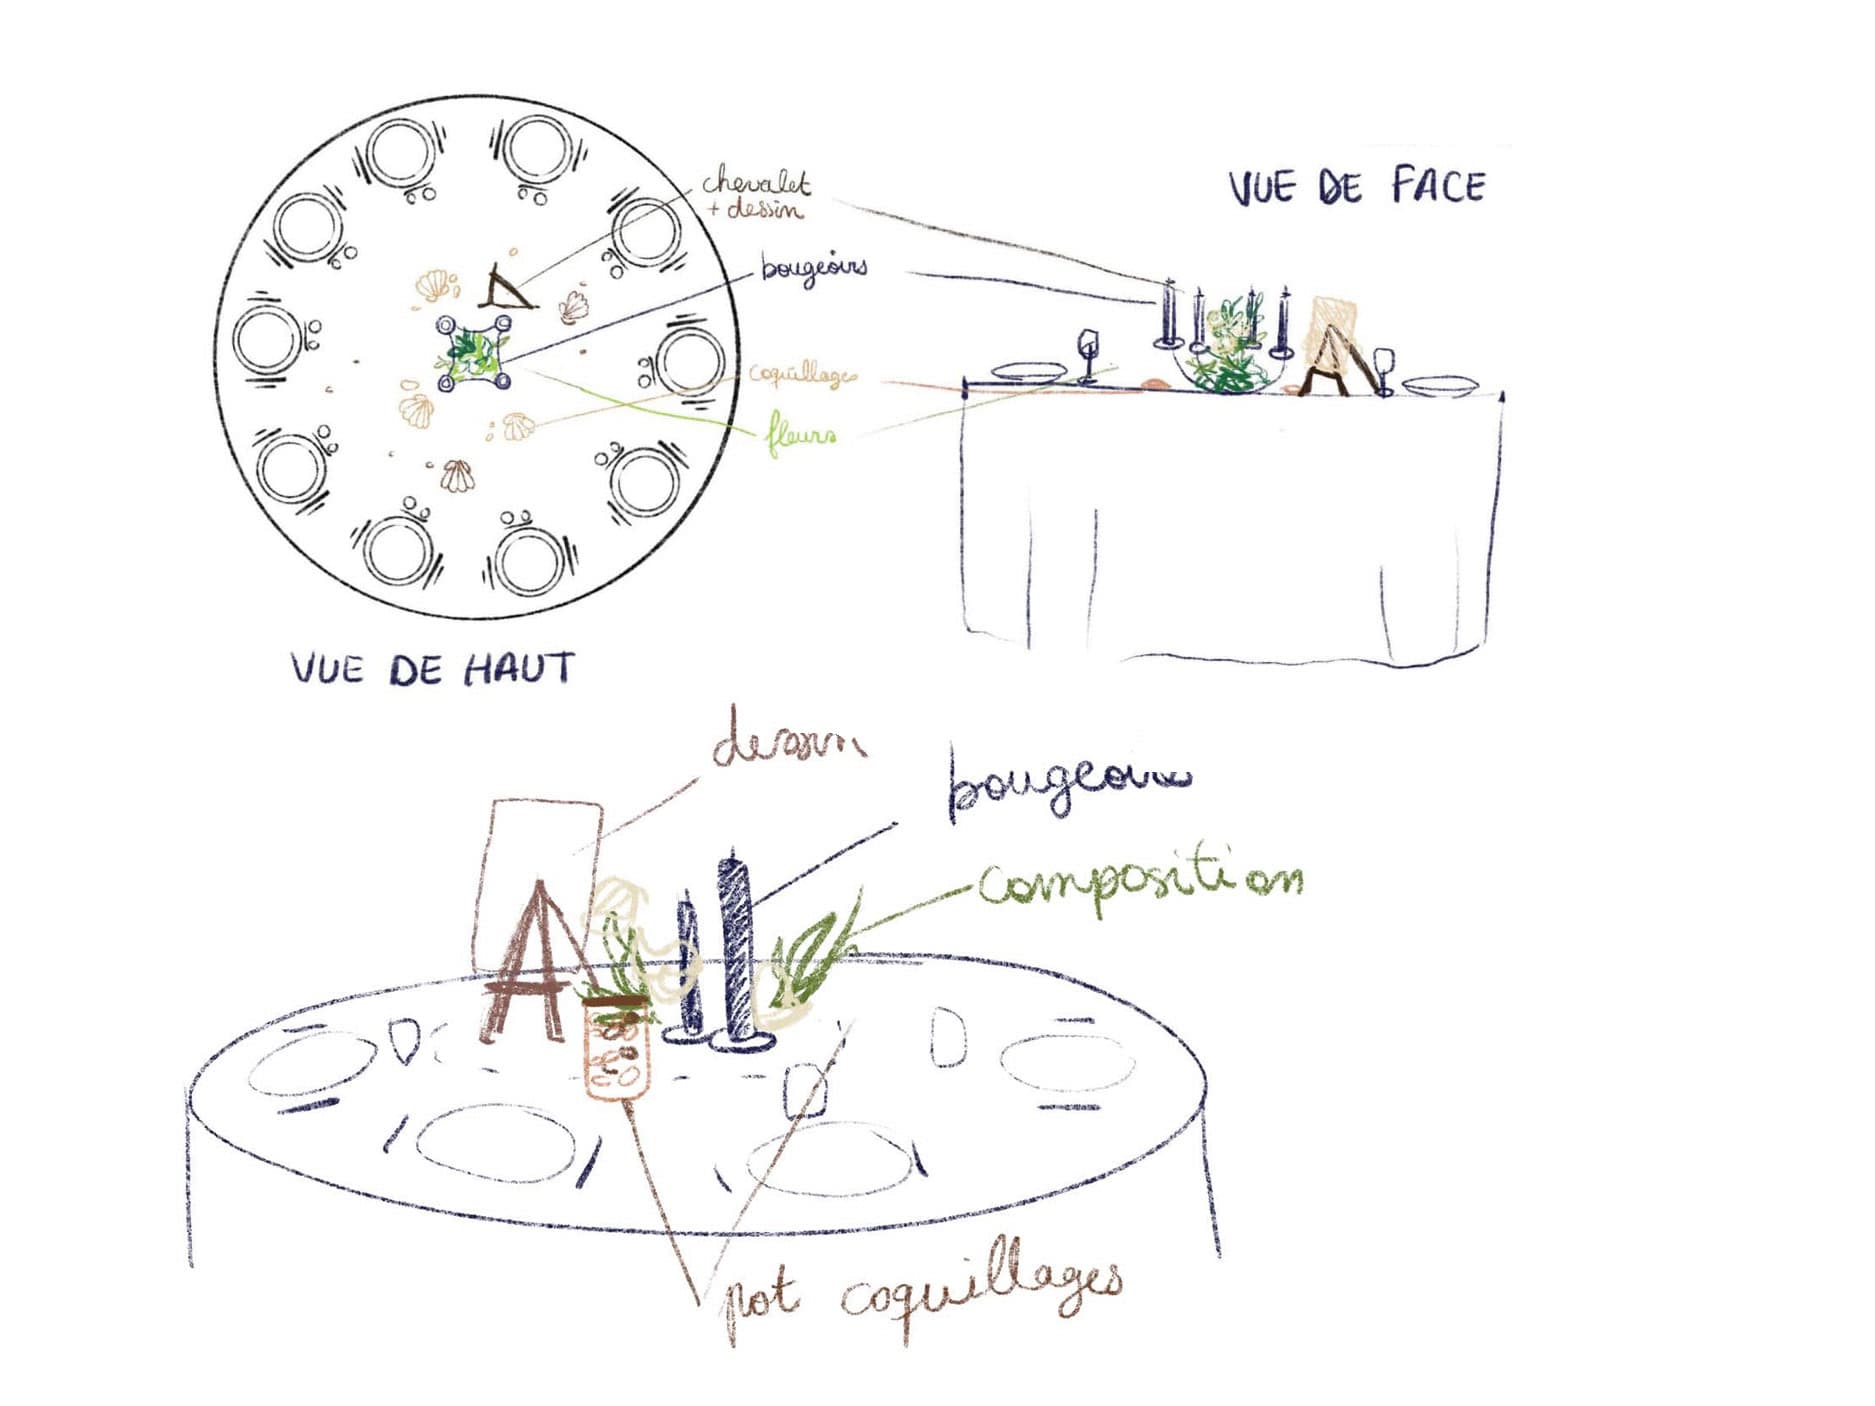 chevalet
+ dessin
VUE DE FACE
bougeoirs
coquillages
fleurs
VUE DE HAUT
dessin
bougeoirs
composition
pot coquillages